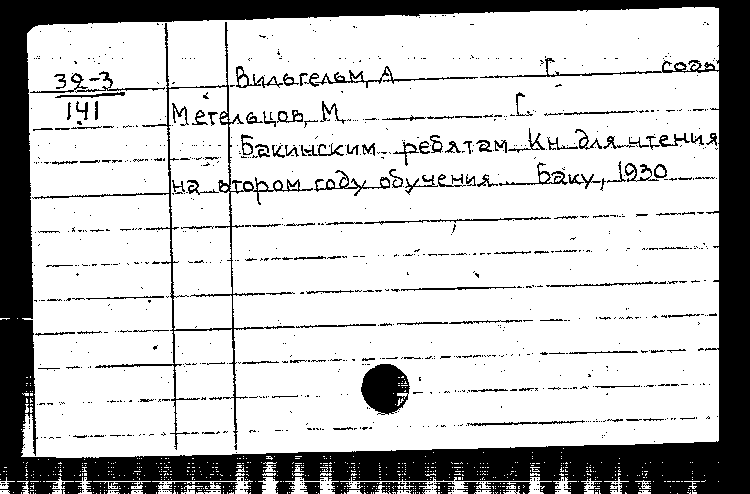 39-3 Вильгельм, А Г. соав
141 Метельцов, М. Г.
Бакинским ребятам. Кн. для чтения
на втором году обучения Баку, 1930